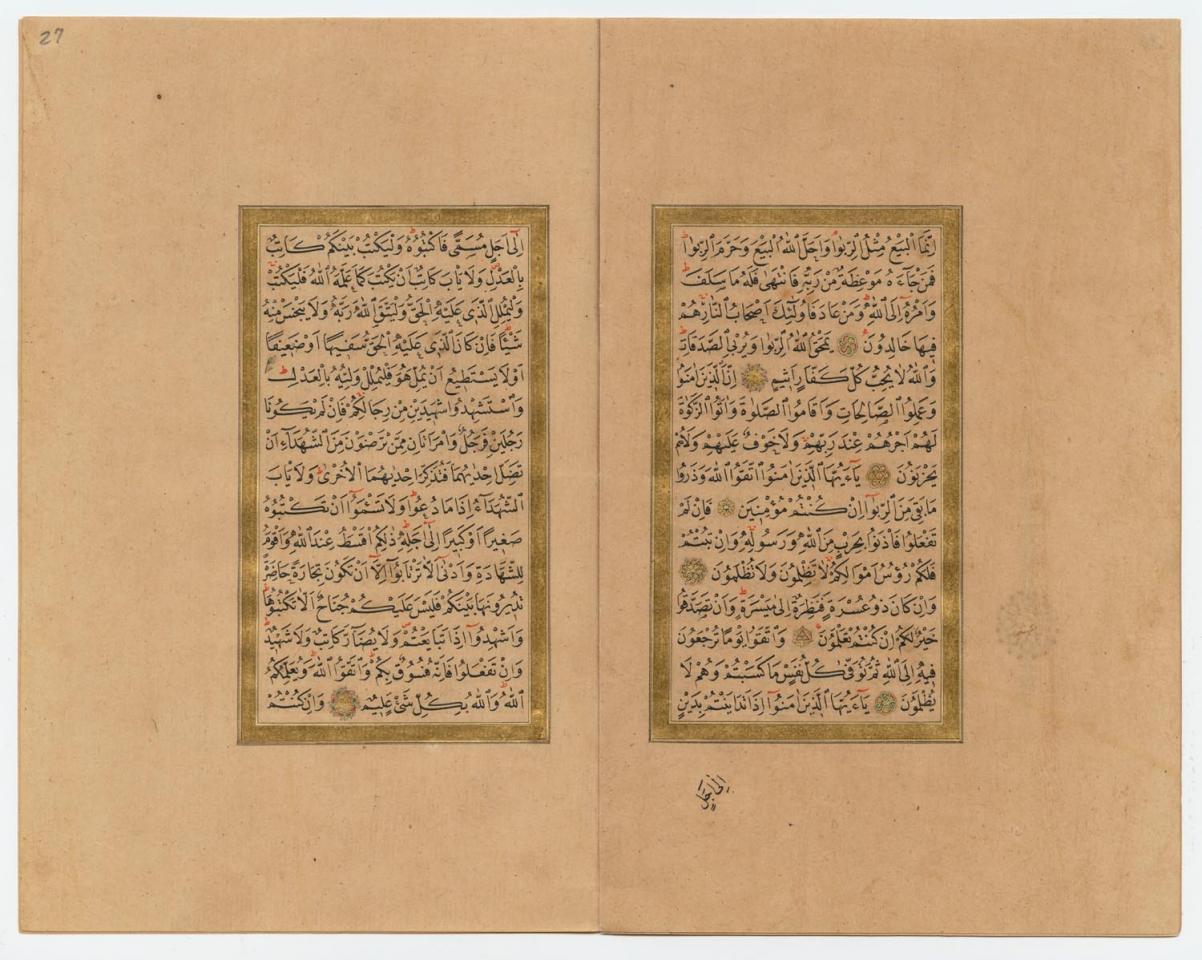 اِنَّمَا الْبَيْعُ مِثْلُ الرِّبٰوا وَاَحَلَّ اللّٰهُ الْبَيْعَ وَحَرَّمَ الرِّبٰوا
فَمَنْ جَآءَهُ مَوْعِظَةٌ مِنْ رَبِّهِ فَانْتَهٰى فَلَهُ مَا سَلَفَ
وَاَمْرُهُ اِلَى اللّٰهِ وَمَنْ عَادَ فَاُولٰئِكَ اَصْحَابُ النَّارِ هُمْ
فِيهَا خَالِدُونَ يَمْحَقُ اللّٰهُ الرِّبٰوا وَيُرْبِي الصَّدَقَاتِ
وَاللّٰهُ لَا يُحِبُّ كُلَّ كَفَّارٍ اَثِيمٍ اِنَّ الَّذِينَ اٰمَنُوا
وَعَمِلُوا الصَّالِحَاتِ وَاَقَامُوا الصَّلٰوةَ وَاٰتَوُا الزَّكٰوةَ
لَهُمْ اَجْرُهُمْ عِنْدَ رَبِّهِمْ وَلَا خَوْفٌ عَلَيْهِمْ وَلَا هُمْ
يَحْزَنُونَ يَآ ءَيُّهَا الَّذِينَ اٰمَنُوا اتَّقُوا اللّٰهَ وَذَرُوا
مَا بَقِيَ مِنَ الرِّبٰوا اِنْ كُنْتُمْ مُؤْمِنِينَ فَاِنْ لَمْ
تَفْعَلُوا فَأْذَنُوا بِحَرْبٍ مِنَ اللّٰهِ وَرَسُولِهِ وَاِنْ تُبْتُمْ
فَلَكُمْ رُؤُسُ اَمْوَالِكُمْ لَا تَظْلِمُونَ وَلَا تُظْلَمُونَ
وَاِنْ كَانَ ذُو عُسْرَةٍ فَنَظِرَةٌ اِلٰى مَيْسَرَةٍ وَاَنْ تَصَدَّقُوا
خَيْرٌ لَكُمْ اِنْ كُنْتُمْ تَعْلَمُونَ وَاتَّقُوا يَوْمًا تُرْجَعُونَ
فِيهِ اِلَى اللّٰهِ ثُمَّ تُوَفّٰى كُلُّ نَفْسٍ مَا كَسَبَتْ وَهُمْ لَا
يُظْلَمُونَ يَآ ءَيُّهَا الَّذِينَ اٰمَنُوا اِذَا تَدَايَنْتُمْ بِدَيْنٍ
اِلٰى اَجَلٍ
27
اِلٰى اَجَلٍ مُسَمًّى فَاكْتُبُوهُ وَلْيَكْتُبْ بَيْنَكُمْ كَاتِبٌ
بِالْعَدْلِ وَلَا يَأْبَ كَاتِبٌ اَنْ يَكْتُبَ كَمَا عَلَّمَهُ اللّٰهُ فَلْيَكْتُبْ
وَلْيُمْلِلِ الَّذِي عَلَيْهِ الْحَقُّ وَلْيَتَّقِ اللّٰهَ رَبَّهُ وَلَا يَبْخَسْ مِنْهُ
شَيْئًا فَاِنْ كَانَ الَّذِي عَلَيْهِ الْحَقُّ سَفِيهًا اَوْ ضَعِيفًا
اَوْ لَا يَسْتَطِيعُ اَنْ يُمِلَّ هُوَ فَلْيُمْلِلْ وَلِيُّهُ بِالْعَدْلِ
وَاسْتَشْهِدُوا شَهِيدَيْنِ مِنْ رِجَالِكُمْ فَاِنْ لَمْ يَكُونَا
رَجُلَيْنِ فَرَجُلٌ وَامْرَاَتَانِ مِمَّنْ تَرْضَوْنَ مِنَ الشُّهَدَآءِ اَنْ
تَضِلَّ اِحْدٰيهُمَا فَتُذَكِّرَ اِحْدٰيهُمَا الْاُخْرٰى وَلَا يَأْبَ
الشُّهَدَآءُ اِذَا مَا دُعُوا وَلَا تَسْئَمُوا اَنْ تَكْتُبُوهُ
صَغِيرًا اَوْ كَبِيرًا اِلٰى اَجَلِهِ ذٰلِكُمْ اَقْسَطُ عِنْدَ اللّٰهِ وَاَقْوَمُ
لِلشَّهَادَةِ وَاَدْنٰى اَلَّا تَرْتَابُوا اِلَّا اَنْ تَكُونَ تِجَارَةً حَاضِرَةً
تُدِيرُونَهَا بَيْنَكُمْ فَلَيْسَ عَلَيْكُمْ جُنَاحٌ اَلَّا تَكْتُبُوهَا
وَاَشْهِدُوا اِذَا تَبَايَعْتُمْ وَلَا يُضَآرَّ كَاتِبٌ وَلَا شَهِيدٌ
وَاِنْ تَفْعَلُوا فَاِنَّهُ فُسُوقٌ بِكُمْ وَاتَّقُوا اللّٰهَ وَيُعَلِّمُكُمُ
اللّٰهُ وَاللّٰهُ بِكُلِّ شَيْءٍ عَلِيمٌ وَاِنْ كُنْتُمْ